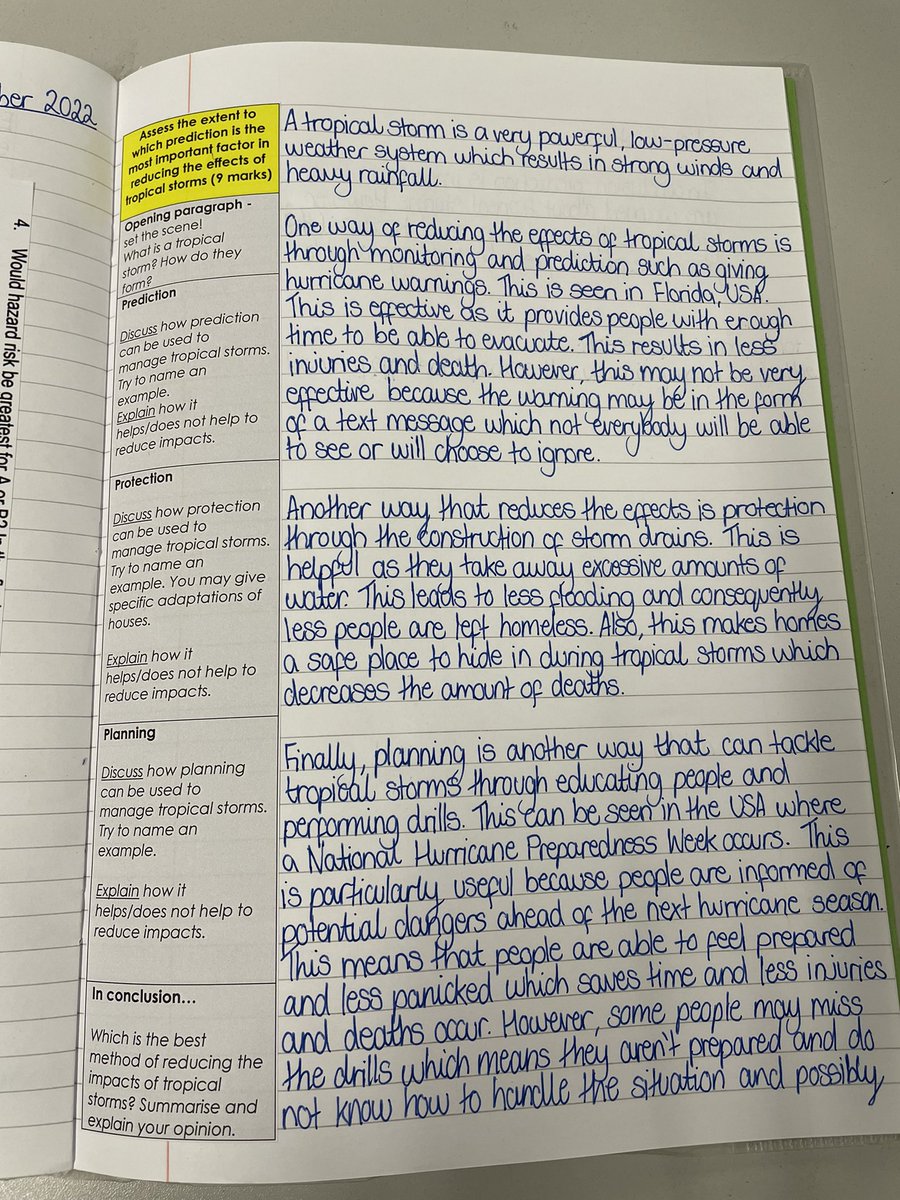 ber 2022
4. Would hazard risk be greatest for A or B?
Assess the extent to
which prediction is the
most important factor in
reducing the effects of
tropical storms (9 marks)
Opening paragraph -
set the scene!
What is a tropical
storm? How do they
form?
Prediction
Discuss how prediction
can be used to
manage tropical storms.
Try to name an
example.
Explain how it
helps/does not help to
reduce impacts.
Protection
Discuss how protection
can be used to
manage tropical storms.
Try to name an
example. You may give
specific adaptations of
houses.
Explain how it
helps/does not help to
reduce impacts.
Planning
Discuss how planning
can be used to
manage tropical storms.
Try to name an
example.
Explain how it
helps/does not help to
reduce impacts.
In conclusion...
Which is the best
method of reducing the
impacts of tropical
storms? Summarise and
explain your opinion.
A tropical storm is a very powerful, low-pressure
weather system which results in strong winds and
heavy rainfall.
One way of reducing the effects of tropical storms is
through monitoring and prediction such as giving
hurricane warnings. This is seen in Florida, USA.
This is effective as it provides people with enough
time to be able to evacuate. This results in less
injuries and death. However, this may not be very
effective because the warning may be in the form
of a text message which not everybody will be able
to see or will choose to ignore.
Another way that reduces the effects is protection
through the construction of storm drains. This is
helpful as they take away excessive amounts of
water. This leads to less flooding and consequently
less people are left homeless. Also, this makes homes
a safe place to hide in during tropical storms which
decreases the amount of deaths.
Finally, planning is another way that can tackle
tropical storms through educating people and
performing drills. This can be seen in the USA where
a National Hurricane Preparedness Week occurs. This
is particularly useful because people are informed of
potential dangers ahead of the next hurricane season.
This means that people are able to feel prepared
and less panicked which saves time and less injuries
and deaths occur. However, some people may miss
the drills which means they aren't prepared and do
not know how to handle the situation and possibly